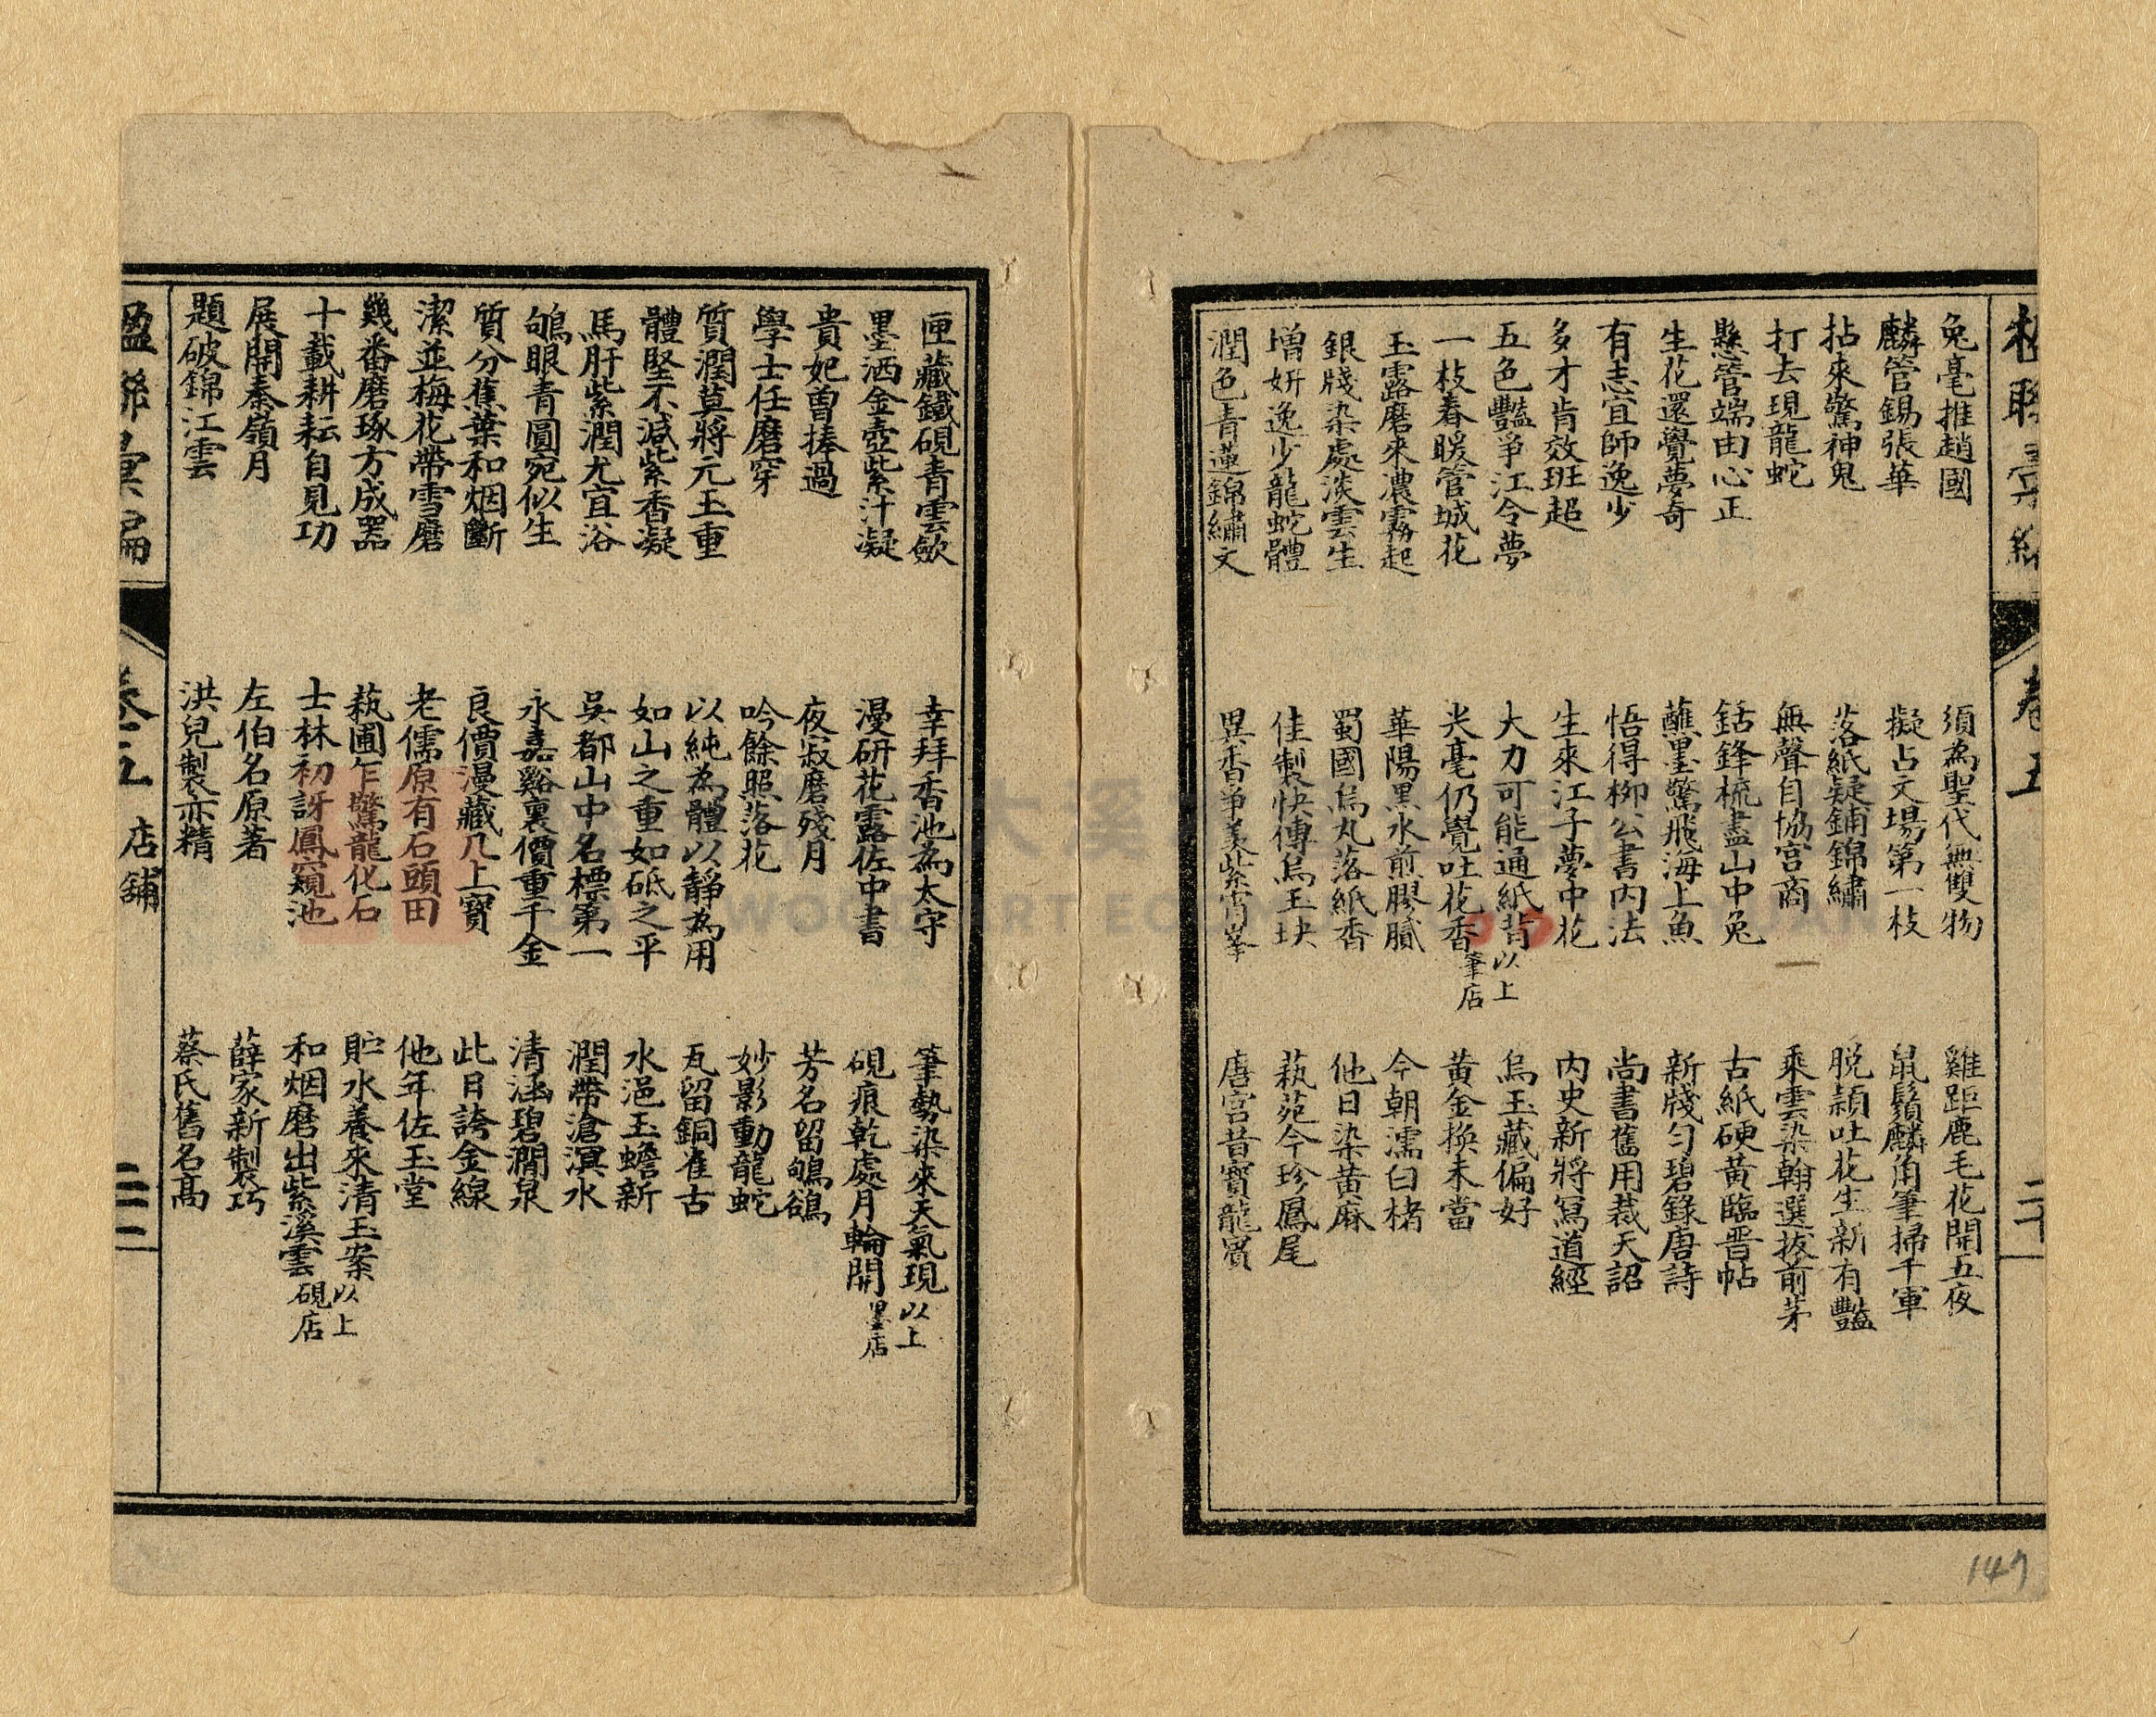 卷五
二十
兔毫推趙國
須為聖代無雙物
雞距鹿毛花開五夜
麟管錫張華
擬占文場第一枝
鼠鬚麟角筆掃千軍
拈來驚神鬼
落紙疑鋪錦繡
脱頴吐花生新有豔
打去現龍蛇
無聲自協宮商
乘雲染翰選拔前茅
懸管端由心正
銛鋒梳盡山中兔
古紙硬黃臨晋帖
生花還覺夢奇
蘸墨驚飛海上魚
新牋勻碧錄唐詩
有志宜師逸少
悟得柳公書内法
尚書舊用裁天詔
多才肯效班超
生來江子夢中花
内史新將寫道經
五色豔爭江令夢
大力可能通紙背
以上
烏玉藏偏好
一枝春暖管城花
尖毫仍覺吐花香
筆店
黃金換未當
玉露磨來濃霧起
華陽黑水煎膠膩
今朝濡白楮
銀牋染處淡雲生
蜀國烏丸落紙香
他日染黄麻
增妍逸少龍蛇體
佳製快傳烏玉玦
蓺苑今珍鳳尾
潤色青蓮錦繡文
異香爭美紫霄峯
唐宫昔寶龍賓
匣藏鐵硯青雲歛
幸拜香池為太守
筆勢染來天氣現
以上
墨洒金壺紫汁凝
漫研花露佐中書
硯痕乾處月輪開
墨店
貴妃曾捧過
夜寂磨殘月
芳名留鴝鵒
學士任磨穿
吟餘照落花
妙影動龍蛇
質潤莫將元玉重
以純為體以靜為用
瓦留銅雀古
體堅不減紫香凝
如山之重如砥之平
水浥玉蟾新
馬肝紫潤尤宜浴
吳都山中名標第一
潤帶滄溟水
鴝眼青圓宛似生
永嘉谿裏價重千金
清涵碧澗泉
質分蕉葉和烟斷
良價漫藏几上寶
此日誇金線
潔並梅花帶雪磨
老儒原有石頭田
他年佐玉堂
幾番磨琢方成器
蓺圃乍驚龍化石
貯水養來清玉案
以上
十載耕耘自見功
士林初訝鳳窺池
和烟磨出紫溪雲
硯店
展開秦嶺月
左伯名原著
薛家新製巧
題破錦江雲
洪兒製亦精
蔡氏舊名高
楹聯彙編
卷五
店舖
二十二
147